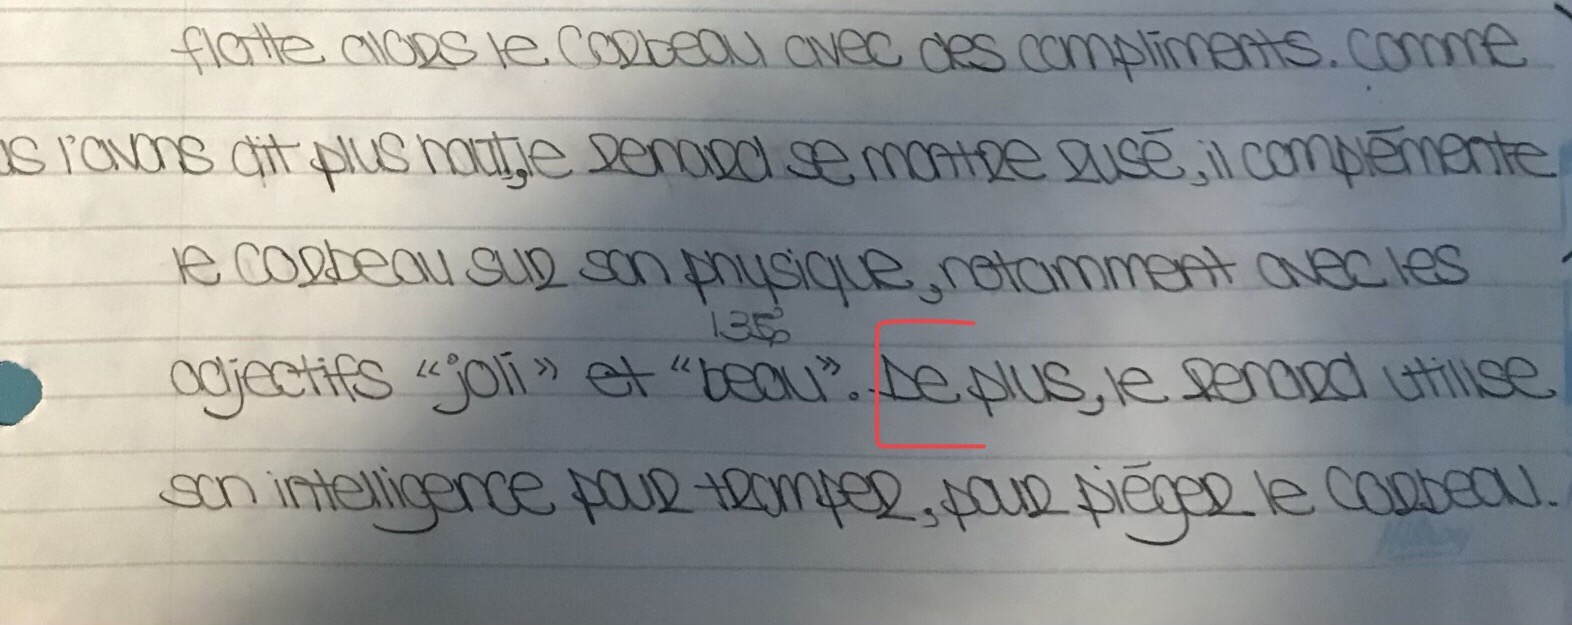 flatte alors le Corbeau avec des compliments. Comme
us l'avons dit plus haut, le Renard se montre rusé, il complémente
le Corbeau sur son physique, notamment avec les
adjectifs "joli" et "beau". De plus, le Renard utilise
son intelligence pour tromper, pour piéger le Corbeau.